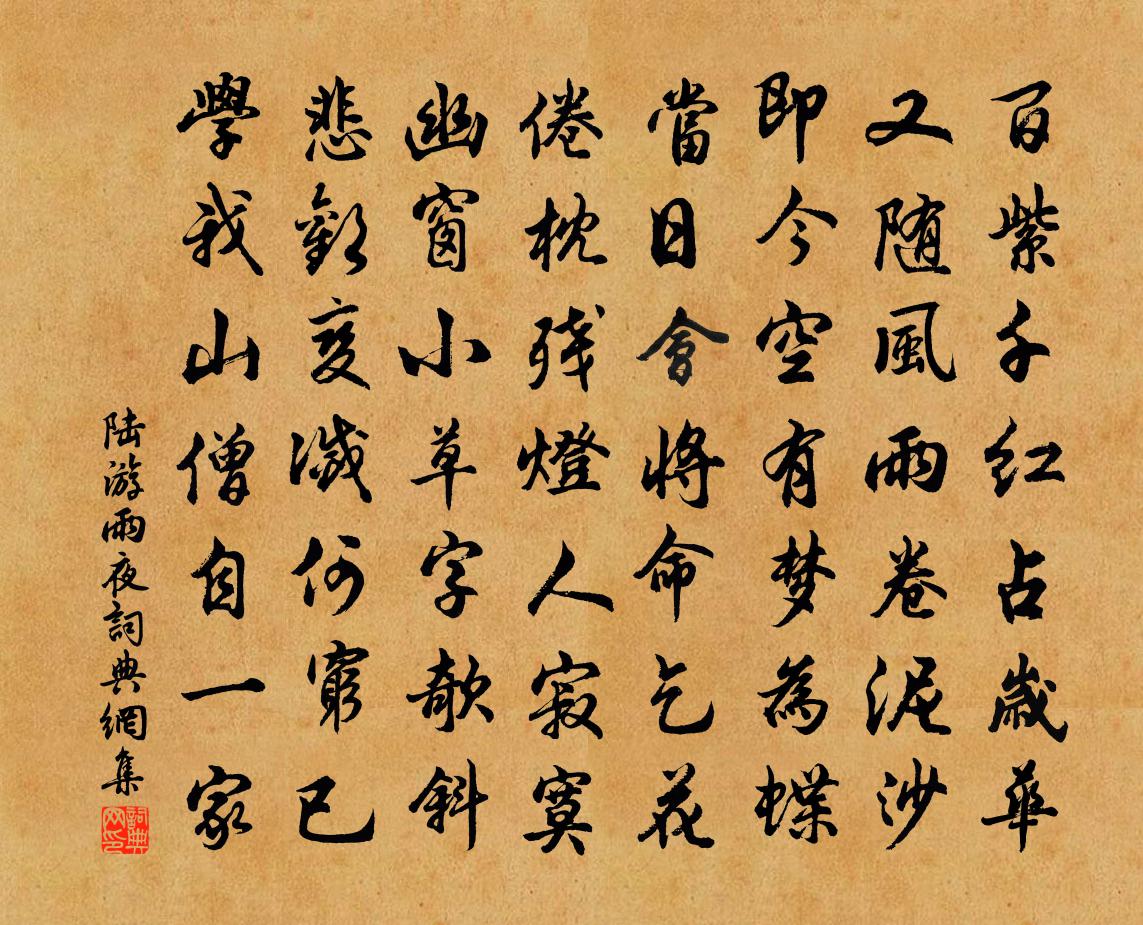 百紫千红占歲華
又随風雨卷泥沙
即今空有梦為蝶
當日會將命乞花
倦枕残燈人寂寞
幽窗小草字欹斜
悲歡变滅何窮已
學我山僧自一家
陆游雨夜詞典網集
詞典网印